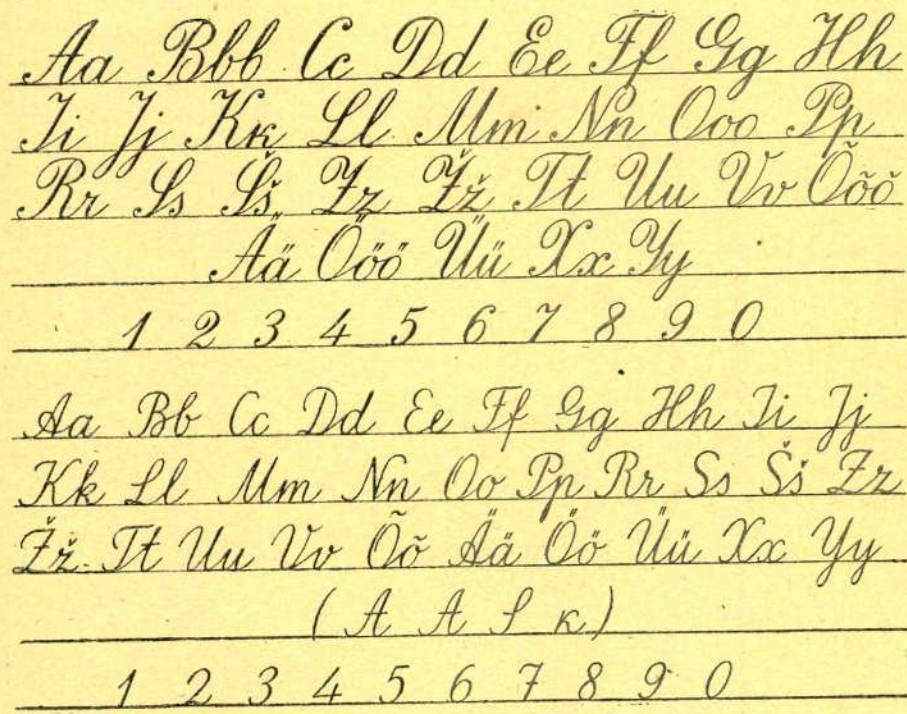 Aa Bbb Cc Dd Ee Ff Gg Hh
Ii Jj Kk Ll Mm Nn Ooo Pp
Rr Ss Šš Zz Žž Tt Uu Vv Õõõ
Ää Ööö Üü Xx Yy
1 2 3 4 5 6 7 8 9 0
Aa Bb Cc Dd Ee Ff Gg Hh Ii Jj
Kk Ll Mm Nn Oo Pp Rr Ss Šš Zz
Žž Tt Uu Vv Õõ Ää Öö Üü Xx Yy
( A A S k )
1 2 3 4 5 6 7 8 9 0